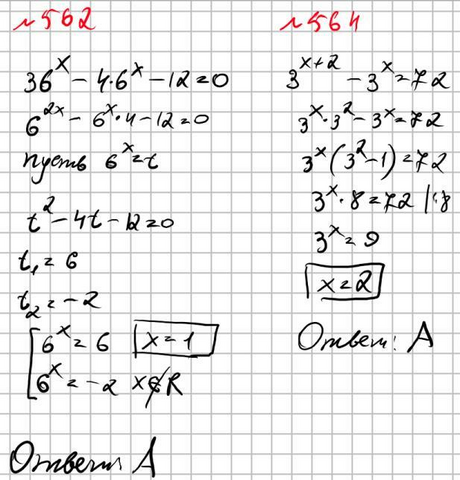 №562
36ˣ - 4·6ˣ - 12 = 0
6²ˣ - 6ˣ·4 - 12 = 0
пусть 6ˣ = t
t² - 4t - 12 = 0
t₁ = 6
t₂ = -2
[6ˣ = 6 x = 1
[6ˣ = -2 x∉R
Ответ: А
№564
3ˣ⁺² - 3ˣ = 72
3ˣ·3² - 3ˣ = 72
3ˣ(3² - 1) = 72
3ˣ·8 = 72 |:8
3ˣ = 9
x = 2
Ответ: А